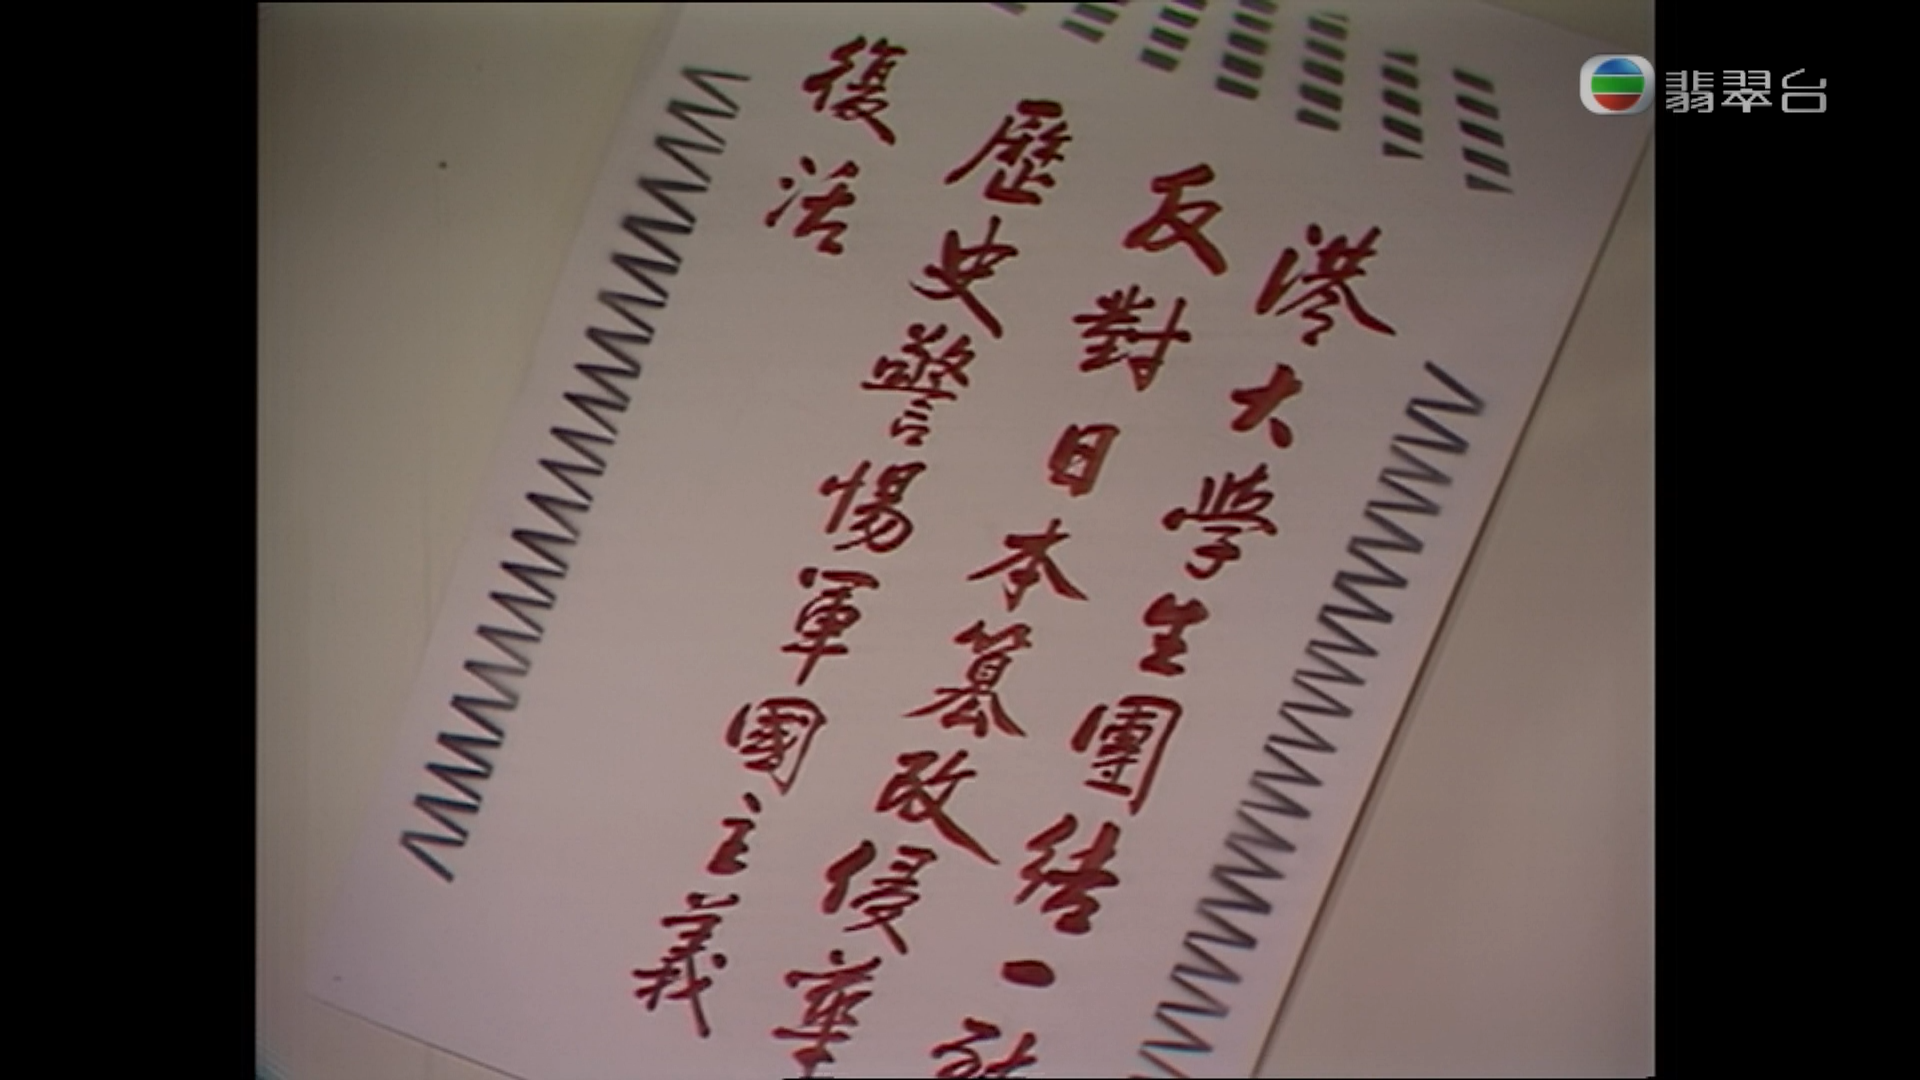 港大學生團結一致
反對日本篡改侵華
歷史警惕軍國主義
復活
翡翠台